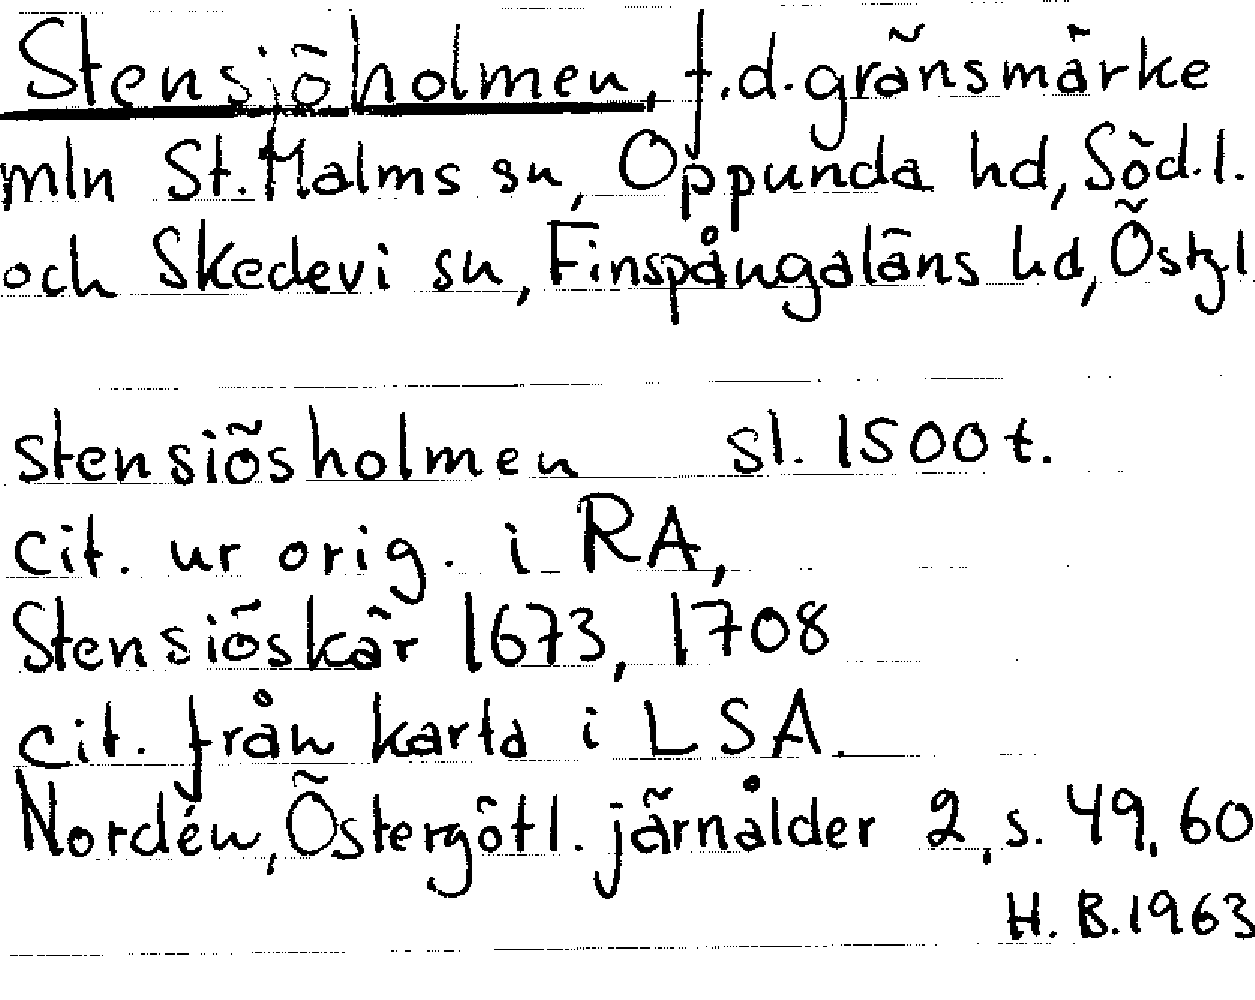 Stensjöholmen, f.d. gränsmärke
mln St. Malms sn, Oppunda hd, Södl.
och Skedevi sn, Finspångaläns hd, Östgl
stensiösholmen sl. 1500 t.
cit. ur orig. i RA,
Stensiöskär 1673, 1708
cit. från karta i LSA.
Nordén, Östergötl. järnålder 2, s. 49, 60
H. B. 1963